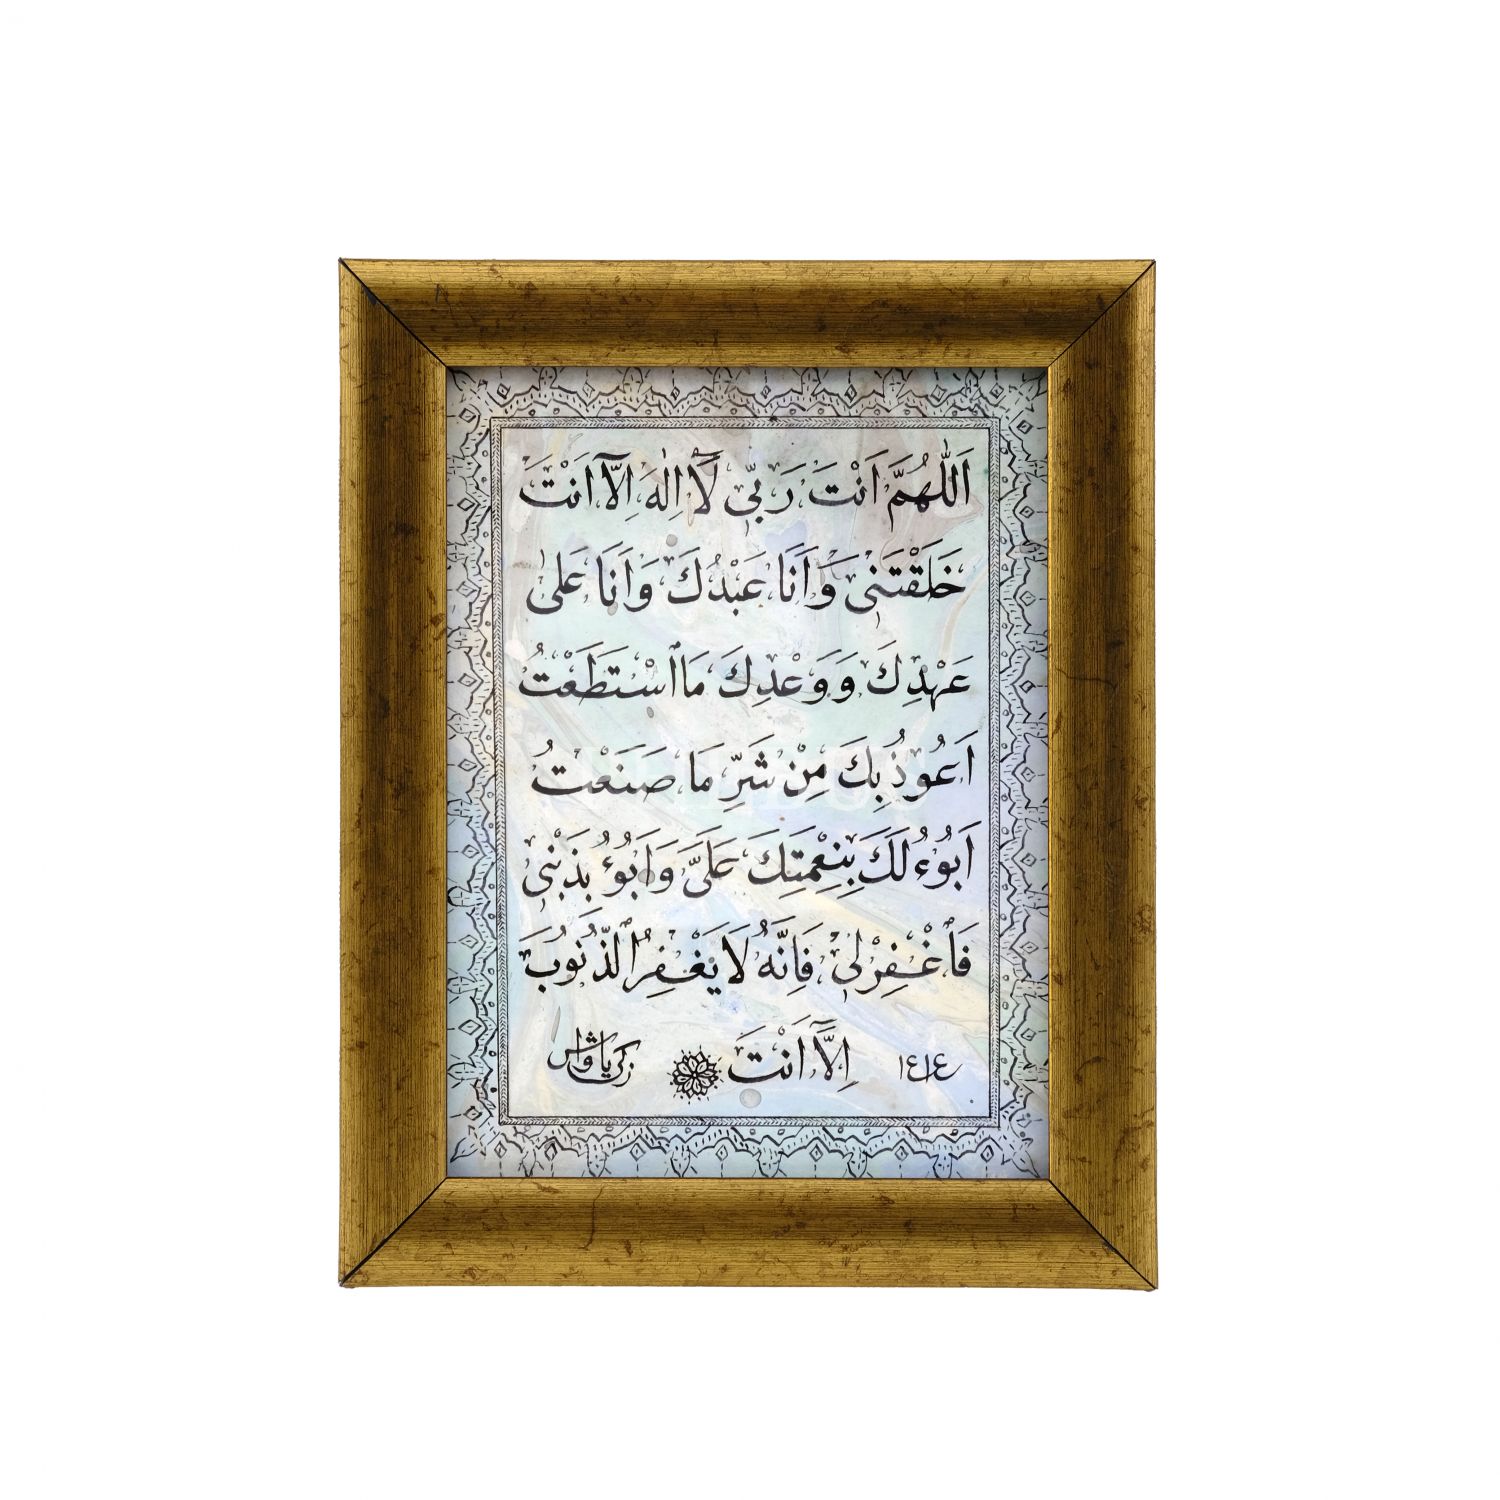 اَللّٰهُمَّ اَنْتَ رَبّٖى لَٓا اِلٰهَ اِلَّٓا اَنْتَ
خَلَقْتَنٖى وَاَنَا عَبْدُكَ وَاَنَا عَلٰى
عَهْدِكَ وَوَعْدِكَ مَا ٱسْتَطَعْتُ
اَعُوذُ بِكَ مِنْ شَرِّ مَا صَنَعْتُ
اَبُوٓءُ لَكَ بِنِعْمَتِكَ عَلَىَّ وَاَبُوءُ بِذَنْبٖى
فَٱغْفِرْلٖى فَاِنَّهُ لَا يَغْفِرُ ٱلذُّنُوبَ
اِلَّٓا اَنْتَ
١٤١٤